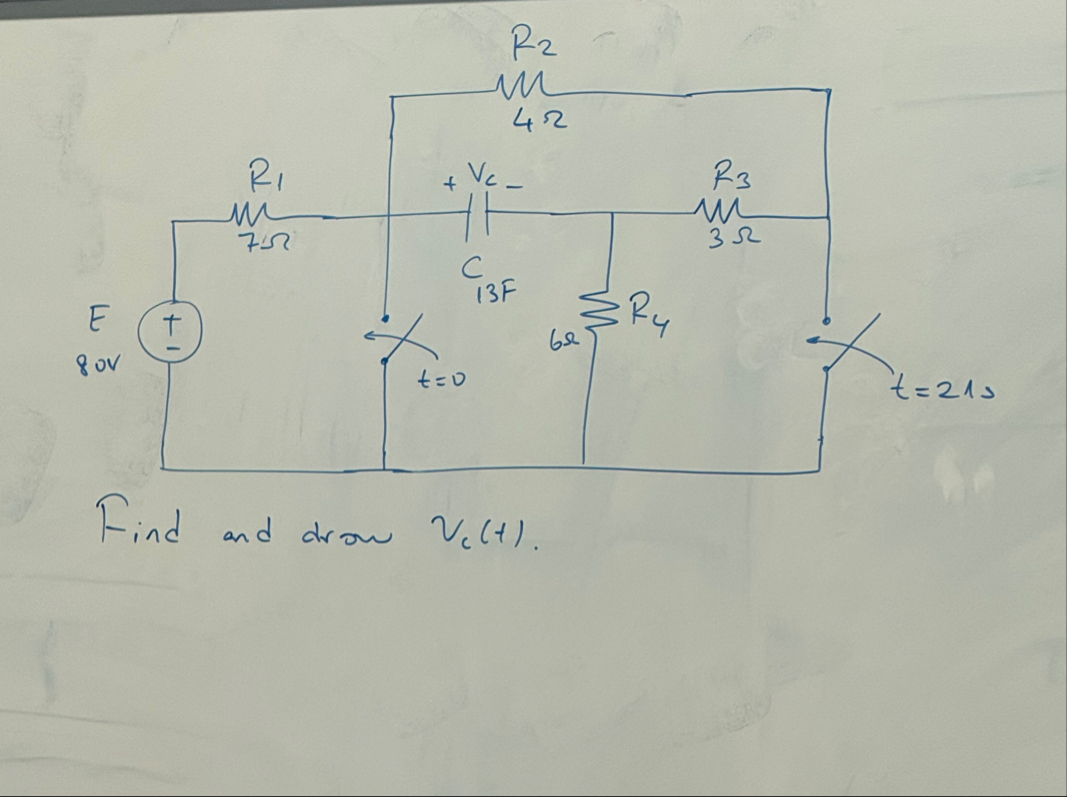 R2
4Ω
R1
+ Vc -
R3
7Ω
3Ω
C
13F
E
+
-
80V
R4
6Ω
t=0
t=21s
Find and draw Vc(t).